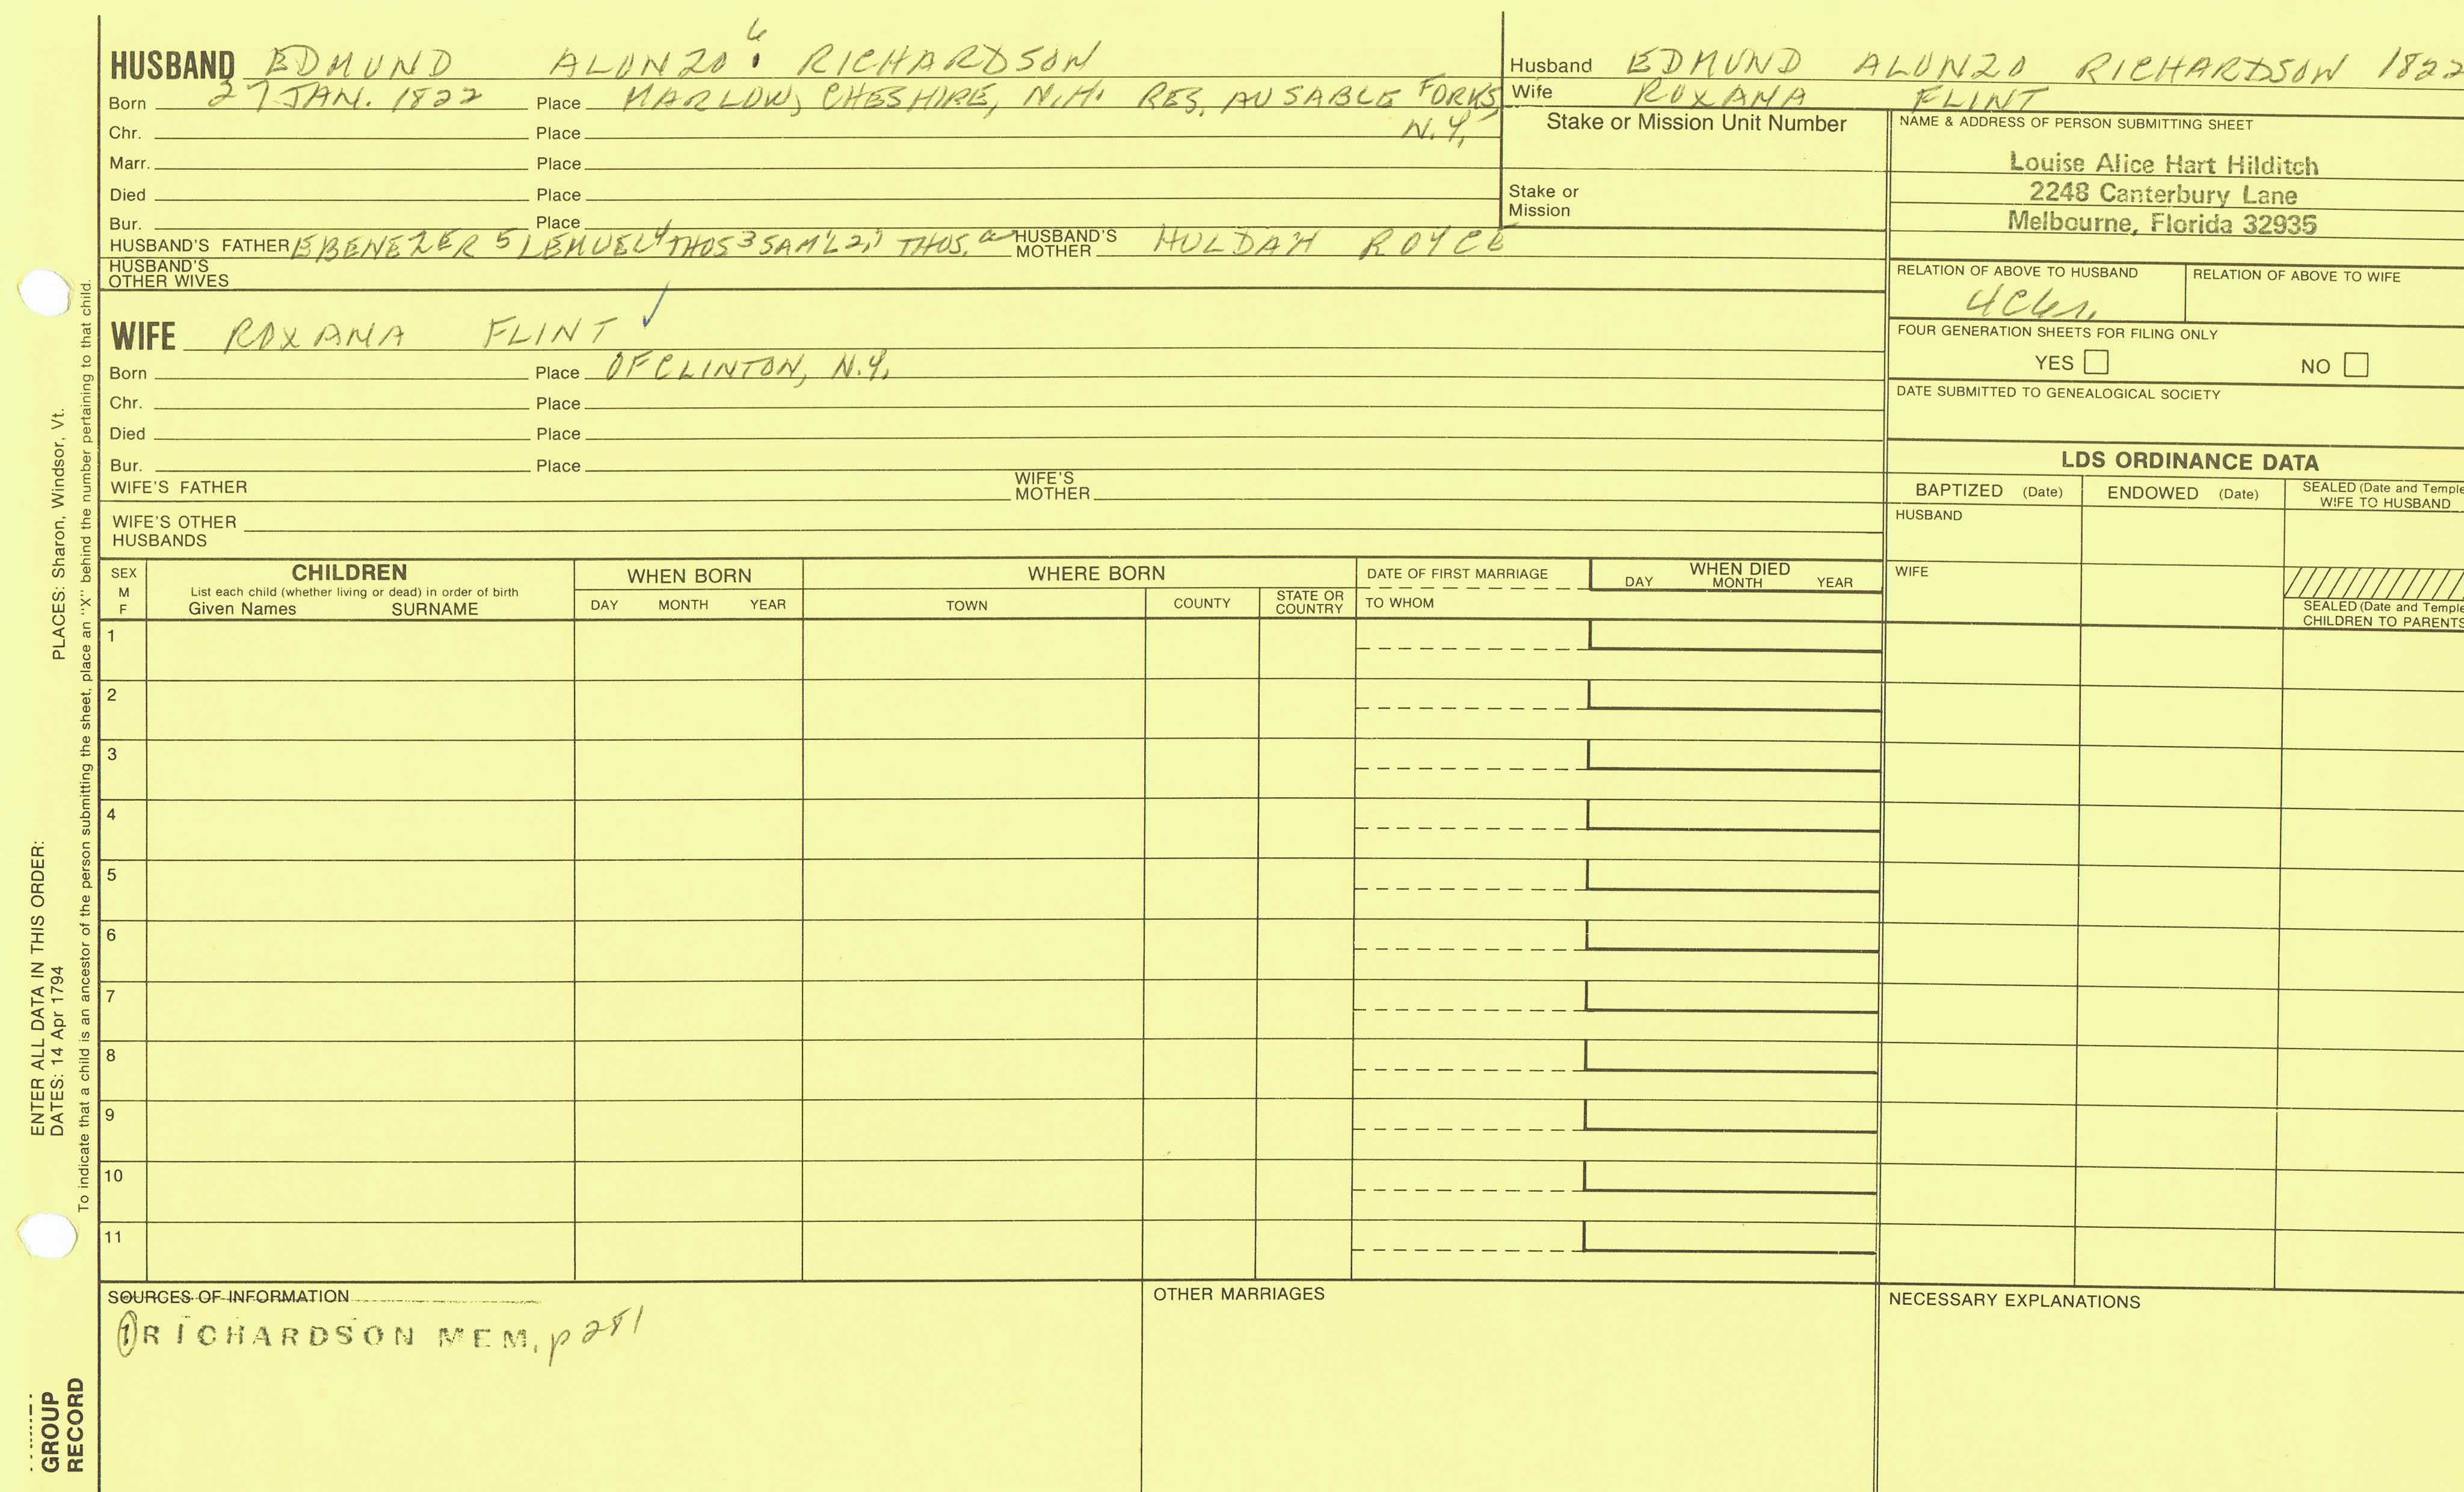 HUSBAND EDMUND ALONZO 6 RICHARDSON
Born 27 JAN. 1822 Place MARLOW, CHESHIRE, N.H. RES. AUSABLE FORKS,
N.Y.
Chr. Place
Marr. Place
Died Place
Bur. Place
HUSBAND'S FATHER EBENEZER 5 LEMUEL 4 THOS 3 SAM'L 2, 1 THOS. HUSBAND'S MOTHER HULDAH ROYCE
HUSBAND'S OTHER WIVES
WIFE ROXANA FLINT ✓
Born Place OF CLINTON, N.Y.
Chr. Place
Died Place
Bur. Place
WIFE'S FATHER WIFE'S MOTHER
WIFE'S OTHER HUSBANDS
Husband EDMUND ALONZO RICHARDSON 1822
Wife ROXANA FLINT
Stake or Mission Unit Number
Stake or
Mission
NAME & ADDRESS OF PERSON SUBMITTING SHEET
Louise Alice Hart Hilditch
2248 Canterbury Lane
Melbourne, Florida 32935
RELATION OF ABOVE TO HUSBAND RELATION OF ABOVE TO WIFE
FOUR GENERATION SHEETS FOR FILING ONLY
YES NO
DATE SUBMITTED TO GENEALOGICAL SOCIETY
LDS ORDINANCE DATA
BAPTIZED (Date) ENDOWED (Date) SEALED (Date and Temple
WIFE TO HUSBAND
HUSBAND
WIFE
SEALED (Date and Temple
CHILDREN TO PARENTS
SEX
M
F
CHILDREN
List each child (whether living or dead) in order of birth
Given Names SURNAME
WHEN BORN
DAY MONTH YEAR
WHERE BORN
TOWN COUNTY STATE OR COUNTRY
DATE OF FIRST MARRIAGE
TO WHOM
WHEN DIED
DAY MONTH YEAR
1
2
3
4
5
6
7
8
9
10
11
SOURCES OF INFORMATION
① RICHARDSON MEM. p 281
OTHER MARRIAGES
NECESSARY EXPLANATIONS
ENTER ALL DATA IN THIS ORDER:
DATES: 14 Apr 1794 PLACES: Sharon, Windsor, Vt.
To indicate that a child is an ancestor of the person submitting the sheet, place an "X" behind the number pertaining to that child.
GROUP
RECORD